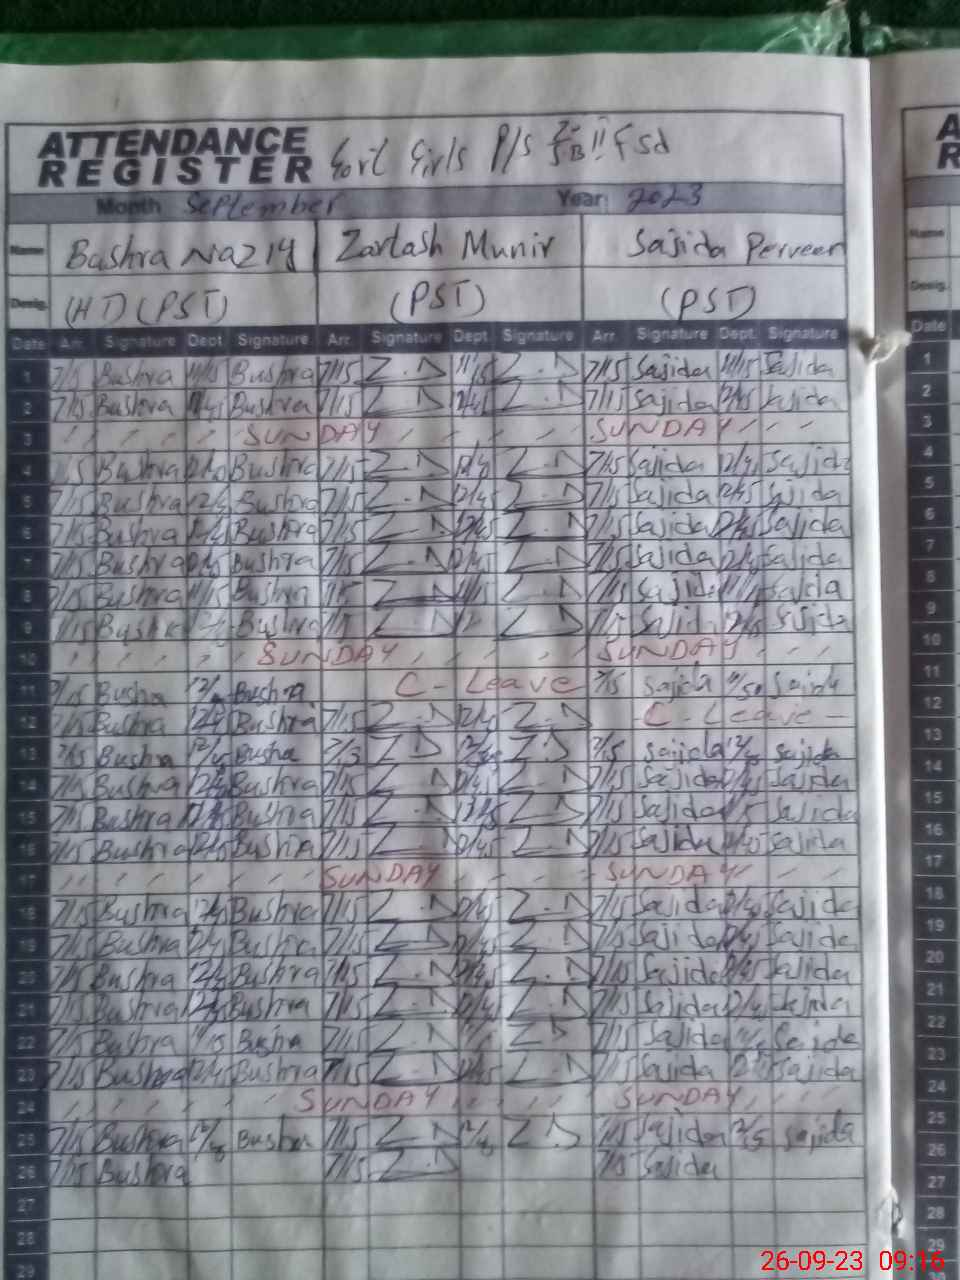 ATTENDANCE REGISTER Govt Girls P/S Fsd
Month September Year: 2023
Name Bushra Naziy Zartash Munir Sajida Perveen
Desig. (HT) (PST) (PST) (PST)
Date Arr. Signature Dept. Signature Arr. Signature Dept. Signature Arr. Signature Dept. Signature Date
1 7/15 Bushra 11/15 Bushra 7/15 Z.N 11/15 Z.N 7/15 Sajida 11/15 Sajida 1
2 7/15 Bushra 12/45 Bushra 7/15 Z.N 12/45 Z.N 7/15 Sajida 12/45 Sajida 2
3 SUNDAY SUNDAY 3
4 7/15 Bushra Bushra 7/15 Z.N Z.N 7/15 Sajida 12/45 Sajida 4
5 7/15 Bushra 12/45 Bushra 7/15 Z.N 12/45 Z.N 7/15 Sajida 12/45 Sajida 5
6 7/15 Bushra 12/45 Bushra 7/15 Z.N 12/45 Z.N 7/15 Sajida 12/45 Sajida 6
7 7/15 Bushra 12/45 Bushra 7/15 Z.N 12/45 Z.N 7/15 Sajida 12/45 Sajida 7
8 7/15 Bushra 11/15 Bushra Z.N 11/15 Z.N 7/15 Sajida 11/15 Sajida 8
9 7/15 Bushra Bushra Z.N Z.N Sajida Sajida 9
10 SUNDAY SUNDAY 10
11 7/15 Bushra Bushra C - Leave 7/15 Sajida 11/50 Sajida 11
12 7/15 Bushra 12/45 Bushra 7/15 Z.N 12/45 Z.N C - Leave - 12
13 7/15 Bushra 12/45 Bushra 7/13 Z.N Z.N 7/15 Sajida Sajida 13
14 7/15 Bushra 12/45 Bushra 7/15 Z.N 12/45 Z.N 7/15 Sajida 12/45 Sajida 14
15 7/15 Bushra Bushra 7/15 Z.N Z.N 7/15 Sajida Sajida 15
16 7/15 Bushra 12/45 Bushra 7/15 Z.N 12/45 Z.N 7/15 Sajida 12/45 Sajida 16
17 SUNDAY SUNDAY 17
18 7/15 Bushra 12/45 Bushra 7/15 Z.N 12/45 Z.N 7/15 Sajida 12/45 Sajida 18
19 7/15 Bushra 12/45 Bushra 7/15 Z.N 12/45 Z.N 7/15 Sajida 12/45 Sajida 19
20 7/15 Bushra 12/45 Bushra 7/15 Z.N 12/45 Z.N 7/15 Sajida 12/45 Sajida 20
21 7/15 Bushra 12/45 Bushra 7/15 Z.N 12/45 Z.N 7/15 Sajida 12/45 Sajida 21
22 7/15 Bushra 11/15 Bushra 7/15 Z.N Z.N 7/15 Sajida Sajida 22
23 7/15 Bushra 12/45 Bushra 7/15 Z.N 12/45 Z.N 7/15 Sajida Sajida 23
24 SUNDAY SUNDAY 24
25 7/15 Bushra Bushra 7/15 Z.N Z.N 7/15 Sajida Sajida 25
26 7/15 Bushra 7/15 Z.N 7/15 Sajida 26
27 27
28 28
29 29
26-09-23 09:16